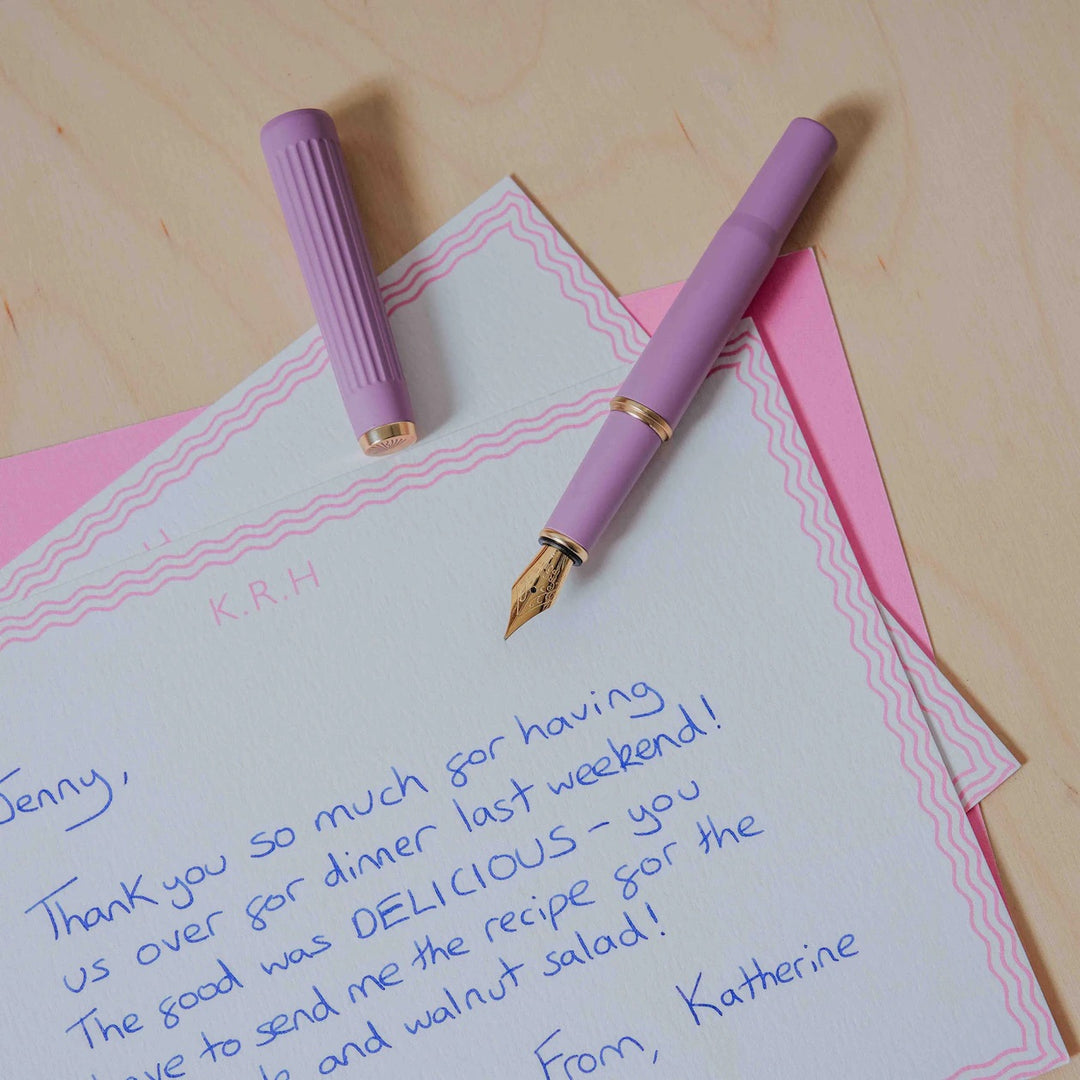 K.R.H
Jenny,
Thank you so much for having
us over for dinner last weekend!
The food was DELICIOUS - you
to send me the recipe for the
and walnut salad!
From,
Katherine